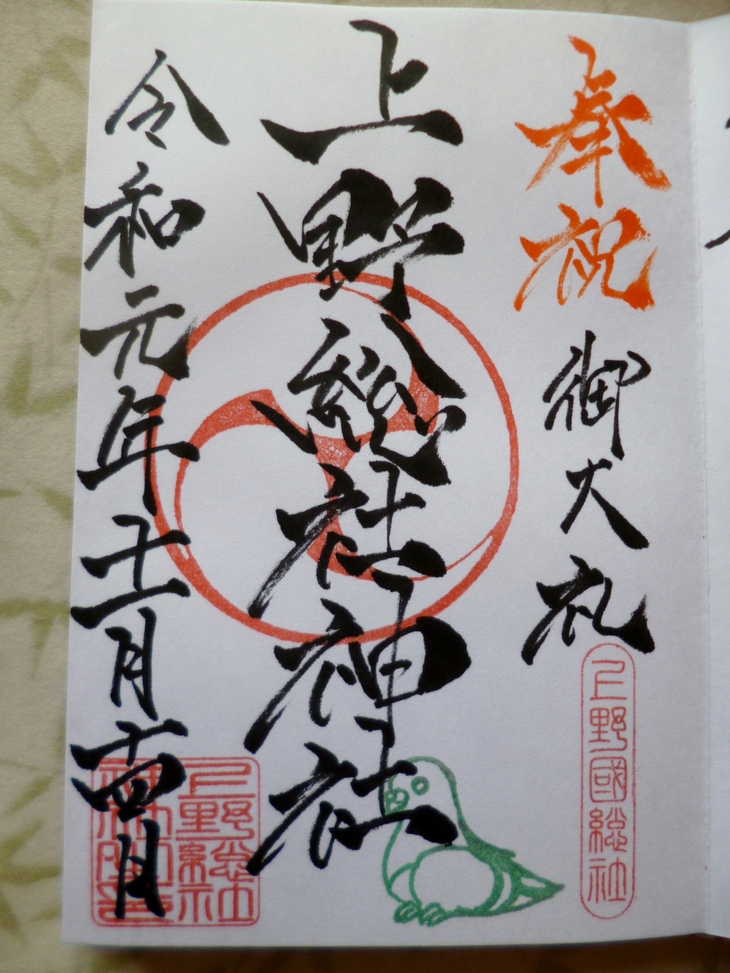 奉祝
御大礼
上野國総社
上野総社神社
令和元年十一月十四日
上野総社